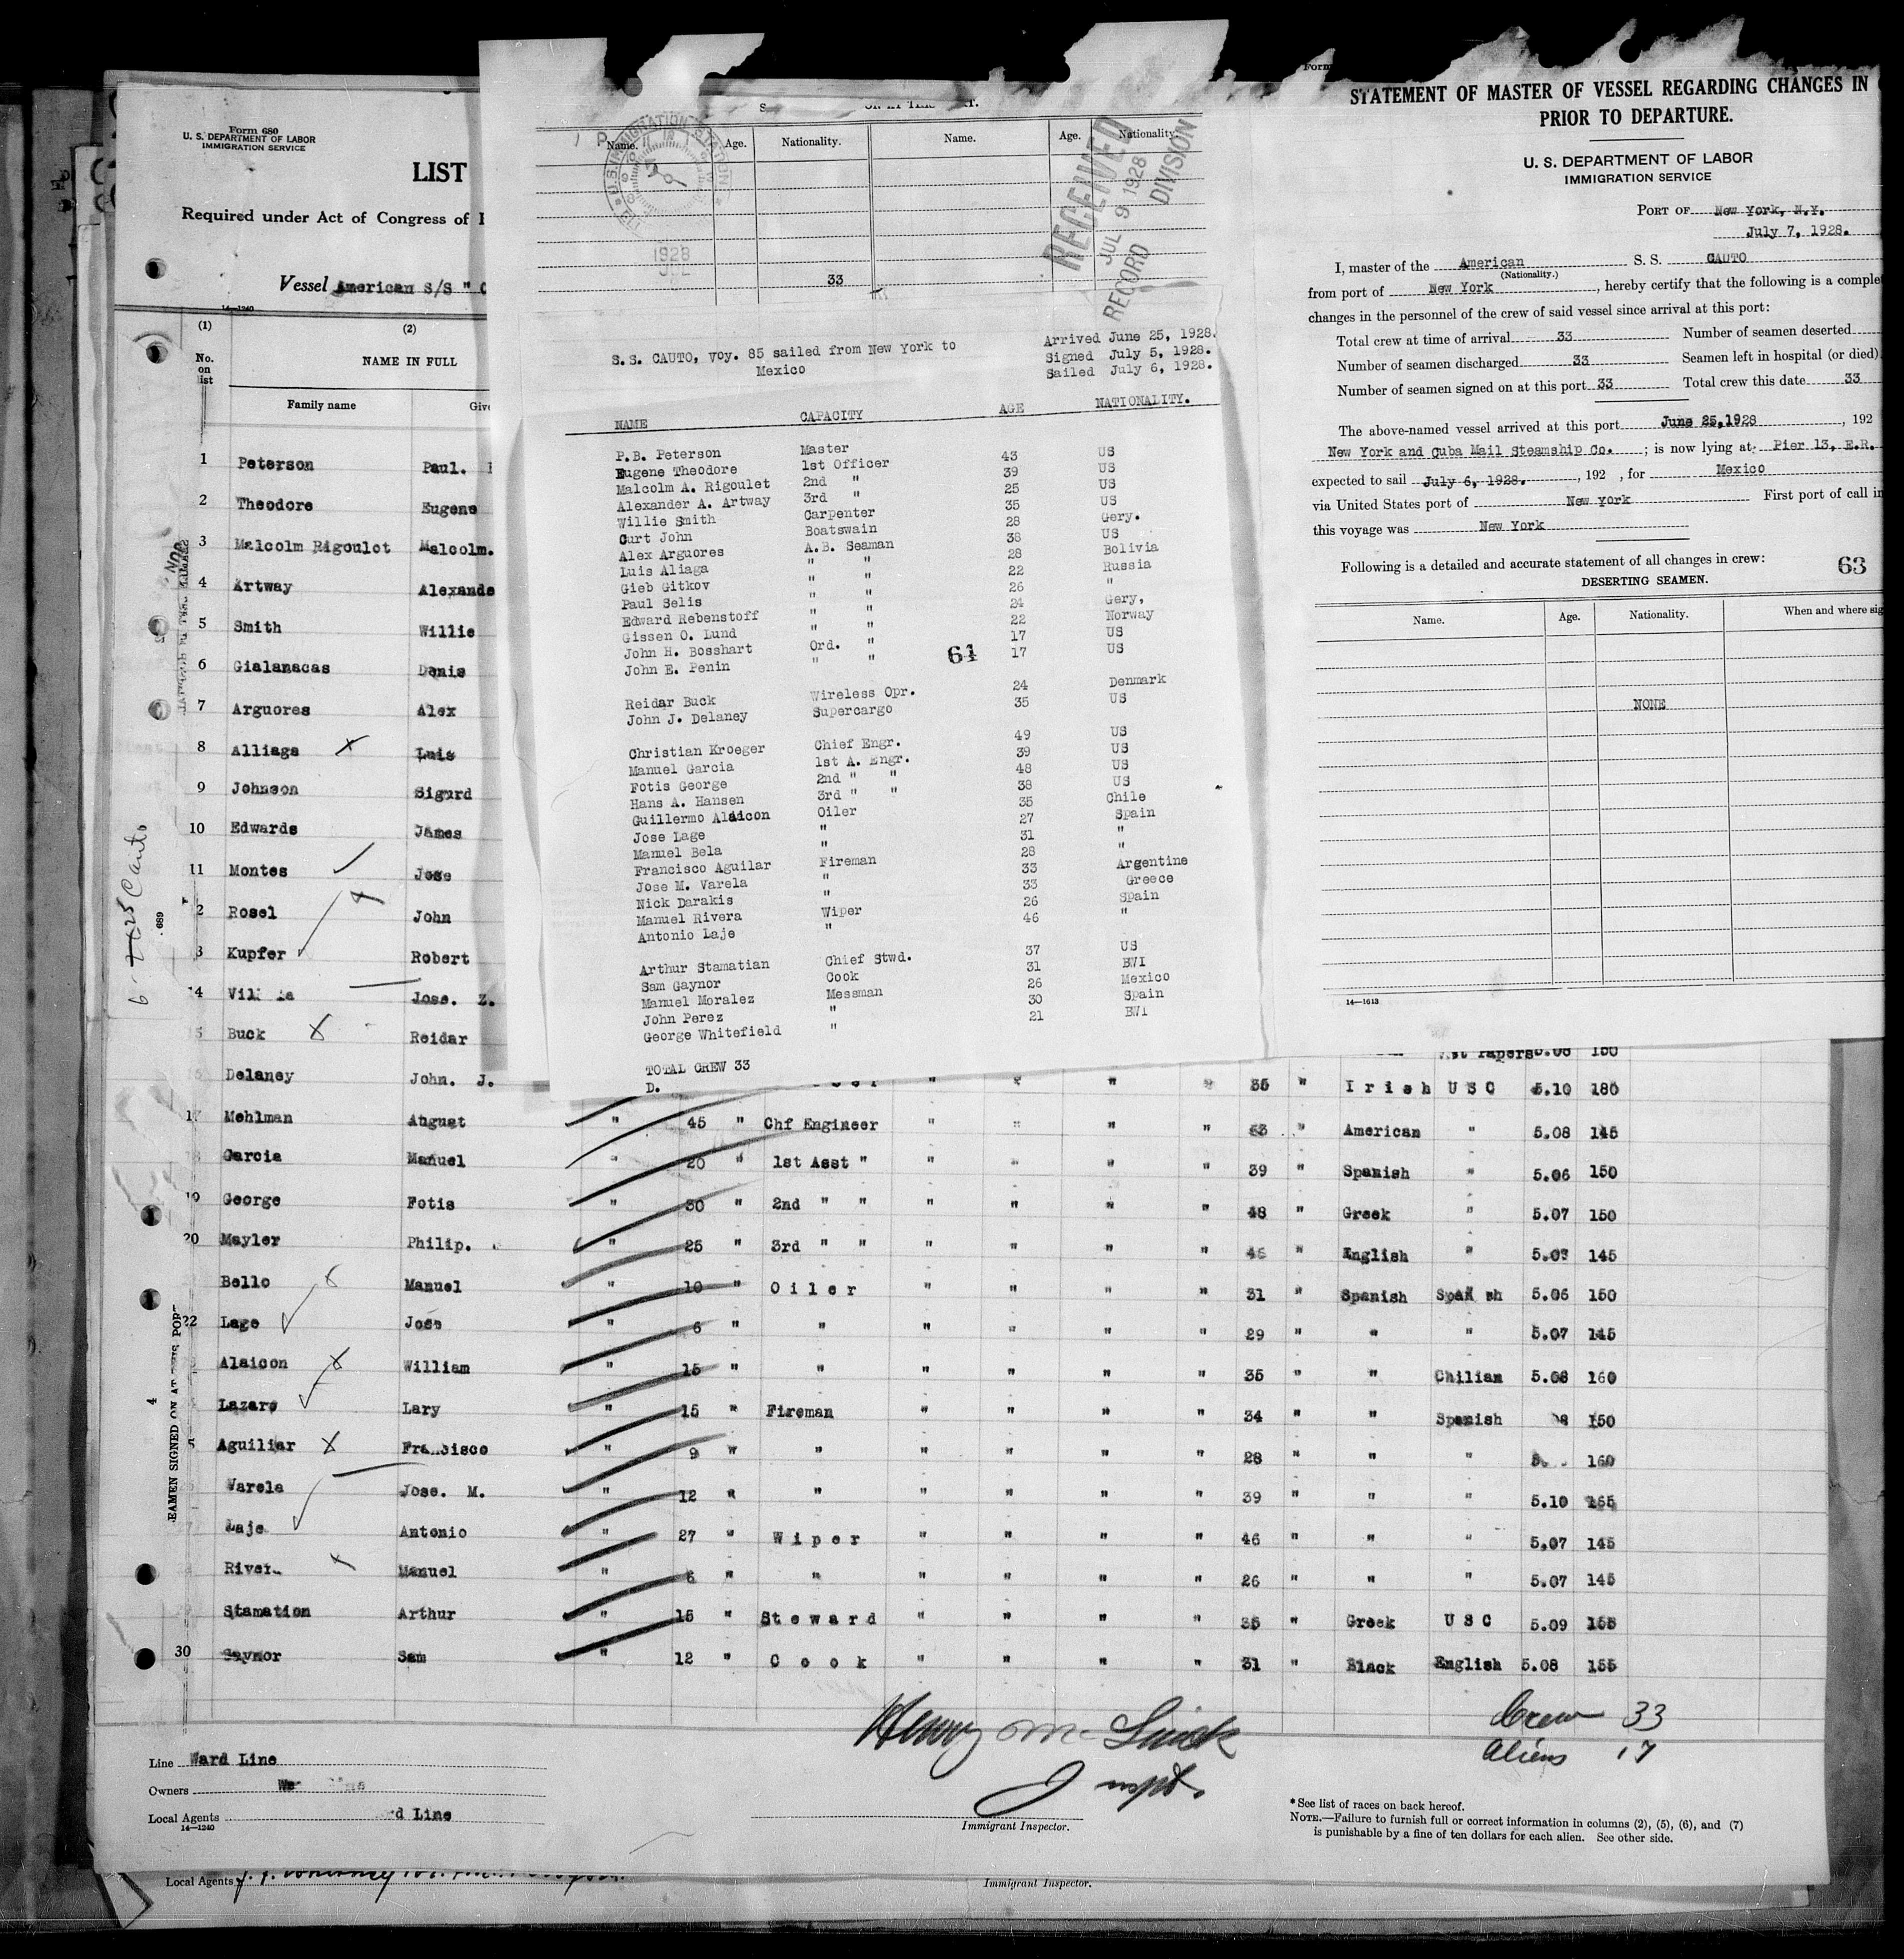 Form 680
U. S. DEPARTMENT OF LABOR
IMMIGRATION SERVICE
LIST
Required under Act of Congress of
Vessel American S/S "
14—1240
(1) (2)
No. on list
NAME IN FULL
Family name
1 Peterson Paul.
2 Theodore Eugene
3 Malcolm Rigoulot Malcolm.
4 Artway Alexande
5 Smith Willie
6 Gialanacas Denis
7 Arguores Alex
8 Alliaga Luis
9 Johnson Sigurd
10 Edwards James
11 Montes Jose
2 Rosel John
3 Kupfer Robert
14 Jose. Z.
5 Buck Reidar
Delaney John. J. 35 " Irish USC 5.10 180
17 Mehlman August " 45 " Chf Engineer " " " " 53 " American " 5.08 145
Garcia Manuel " 20 " 1st Asst " " " " " 39 " Spanish " 5.06 150
19 George Fotis " 30 " 2nd " " " " " " 48 " Greek " 5.07 150
20 Mayler Philip. " 25 " 3rd " " " " " " 46 " English " 5.03 145
Bello Manuel " 10 " Oiler " " " " 31 " Spanish 5.06 150
22 Lage Jose " 6 " " " " " " 29 " " " 5.07 145
Alaicon William " 15 " " " " " " 35 " " Chilian 5.08 160
Lazaro Lary " 15 " Fireman " " " " 34 " " Spanish 150
5 Aguiliar Francisco " 9 " " " " " " 28 " " " 160
Varela Jose. M. " 12 " " " " " " 39 " " " 5.10 165
Laje Antonio " 27 " Wiper " " " " 46 " " " 5.07 145
Manuel " 6 " " " " " " 26 " " " 5.07 145
Stamation Arthur " 15 " Steward " " " " 35 " Greek USC 5.09 155
30 Gaynor Sam " 12 " Cook " " " " 31 " Black English 5.08 155
Henry Mc
Inspt.
Crew 33
Aliens 17
Line Ward Line
Owners
Local Agents rd Line
14—1240
Immigrant Inspector.
*See list of races on back hereof.
NOTE.—Failure to furnish full or correct information in columns (2), (5), (6), and (7)
is punishable by a fine of ten dollars for each alien. See other side.
Local Agents
Immigrant Inspector.
EAMEN SIGNED ON AT THIS PORT
4
689
Cauto
Name. Age. Nationality. Name. Age. Nationality.
U.S. IMMIGRATION STATION
1928
RECEIVED
JUL 9 1928
RECORD DIVISION
33
S.S. CAUTO, Voy. 85 sailed from New York to
Mexico
Arrived June 25, 1928.
Signed July 5, 1928.
Sailed July 6, 1928.
NAME CAPACITY AGE NATIONALITY.
P.B. Peterson Master 43 US
Eugene Theodore 1st Officer 39 US
Malcolm A. Rigoulet 2nd " 25 US
Alexander A. Artway 3rd " 35 US
Willie Smith Carpenter 28 Gery.
Curt John Boatswain 38 US
Alex Arguores A.B. Seaman 28 Bolivia
Luis Aliaga " " 22 Russia
Gieb Gitkov " " 26 "
Paul Selis " " 24 Gery,
Edward Rebenstoff " " 22 Norway
Gissen O. Lund " " 17 US
John H. Bosshart Ord. " 17 US
John E. Penin " "
61
Reidar Buck Wireless Opr. 24 Denmark
John J. Delaney Supercargo 35 US
Christian Kroeger Chief Engr. 49 US
Manuel Garcia 1st A. Engr. 39 US
Fotis George 2nd " " 48 US
Hans A. Hansen 3rd " " 38 US
Guillermo Alaicon Oiler 35 Chile
Jose Lage " 27 Spain
Manuel Bela " 31 "
Francisco Aguilar Fireman 28 "
Jose M. Varela " 33 Argentine
Nick Darakis " 33 Greece
Manuel Rivera Wiper 26 Spain
Antonio Laje " 46 "
Arthur Stamatian Chief Stwd. 37 US
Sam Gaynor Cook 31 BWI
Manuel Moralez Messman 26 Mexico
John Perez " 30 Spain
George Whitefield " 21 BWI
TOTAL CREW 33
D.
Form
STATEMENT OF MASTER OF VESSEL REGARDING CHANGES IN
PRIOR TO DEPARTURE.
U. S. DEPARTMENT OF LABOR
IMMIGRATION SERVICE
PORT OF New York, N.Y.
July 7, 1928.
I, master of the American S. S. CAUTO
(Nationality.)
from port of New York, hereby certify that the following is a comple
changes in the personnel of the crew of said vessel since arrival at this port:
Total crew at time of arrival 33 Number of seamen deserted
Number of seamen discharged 33 Seamen left in hospital (or died)
Number of seamen signed on at this port 33 Total crew this date 33
The above-named vessel arrived at this port June 25, 1928, 192
New York and Cuba Mail Steamship Co.; is now lying at Pier 13, E.R.
expected to sail July 6, 1928., 192 , for Mexico
via United States port of New York First port of call in
this voyage was New York
Following is a detailed and accurate statement of all changes in crew:
63
DESERTING SEAMEN.
Name. Age. Nationality. When and where sig
NONE
14—1613